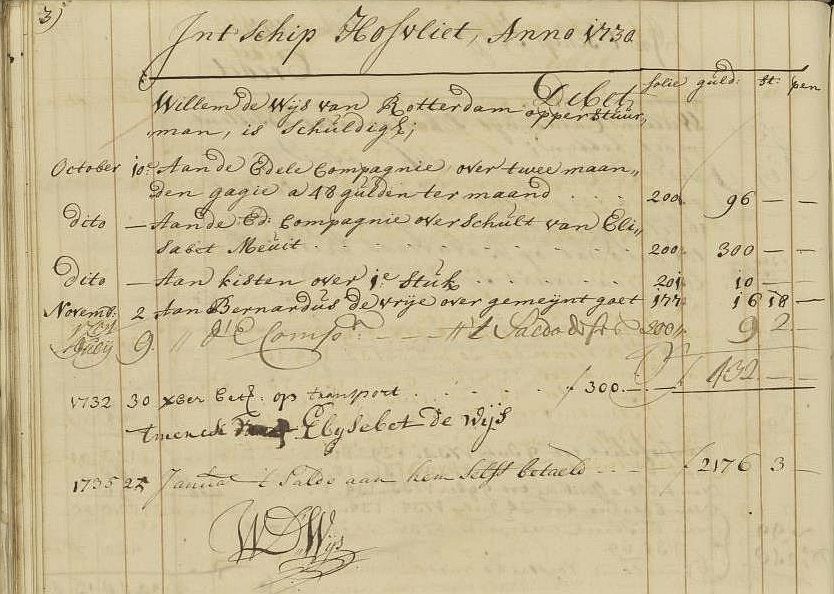 3)
Int Schip Hofvliet, Anno 1730
Debet folie guld: st: pen
Willem de Wijs van Rotterdam opperstuur„
man, is Schuldigh;
October 10e Aan de Edele Compagnie over twee maan„
den gagie a 48 gulden ter maand . . . 200 96 — —
dito — Aan de Ed: Compagnie over Schult van Eli„
Sabet Meuit . . . 200 300 — —
dito — Aan kisten over 1e Stuk . . . 201 10 — —
Novemb: 2 Aan Bernardus de vrije over gemeynt goet 177 16 18 —
9 " d'E Comp — — " 't Saldo deser 200 9 2
ƒ 432 — —
1732 30 xber bet: op transport . . . ƒ 300 . — . —
Elysebet de Wijs
1735 27 Janua 't Saldo aan hem Selfst betaeld — — ƒ 2176 3 —
WDWijs